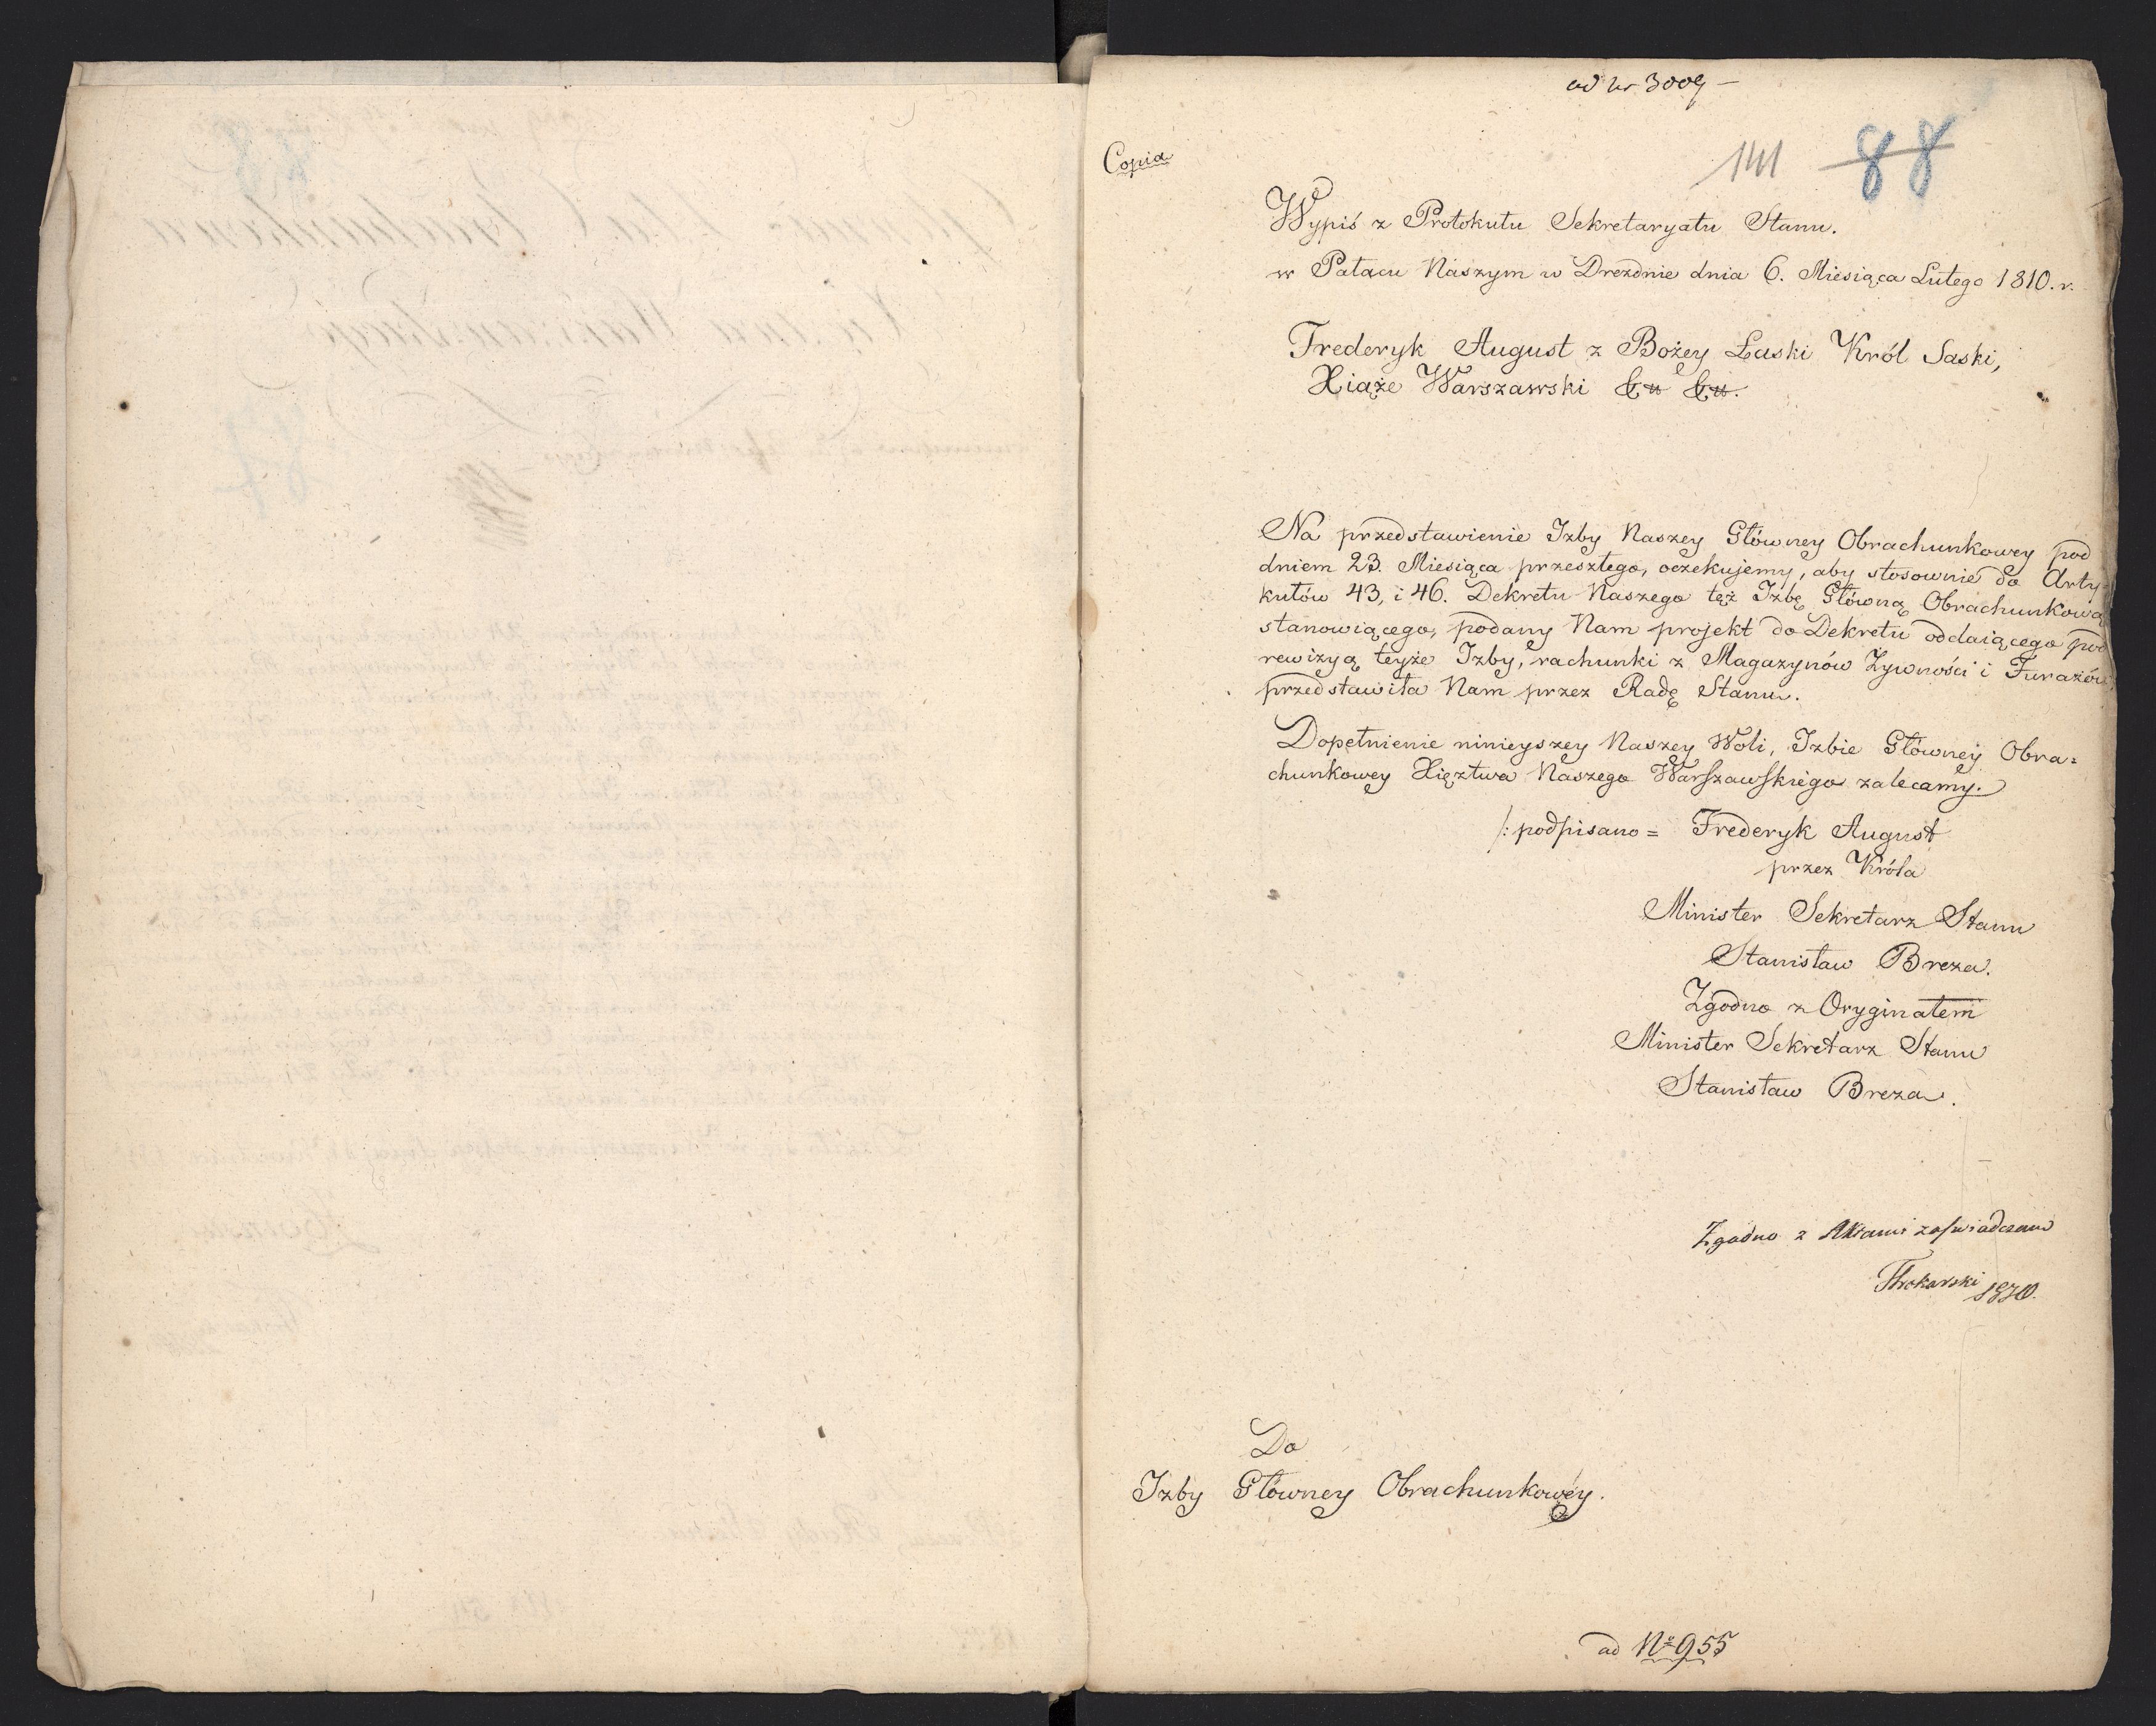 ad Nr 3009 –
Copia
141 88
Wypis z Protokułu Sekretaryatu Stanu.
w Pałacu Naszym w Dreźdnie dnia 6. Miesiąca Lutego 1810. r.
Frederyk August z Bożey Łaski Król Saski,
Xiąże Warszawski &c &c.
Na przedstawienie Izby Naszey Główney Obrachunkowey pod
dniem 23. Miesiąca przeszłego, oczekujemy, aby stosownie do Arty-
kułów 43, i 46. Dekretu Naszego też Izbę Główną Obrachunkową
stanowiącego, podany Nam projekt do Dekretu oddaiącego pod
rewizyą teyże Izby, rachunki z Magazynów Żywności i Furażów
przedstawiła Nam przez Radę Stanu.
Dopełnienie ninieyszey Naszey Woli, Izbie Główney Obra=
chunkowey Xięztwa Naszego Warszawskiego zalecamy.
/: podpisano = Frederyk August
przez Króla
Minister Sekretarz Stanu
Stanisław Breza.
Zgodno z Oryginałem
Minister Sekretarz Stanu
Stanisław Breza.
Zgodno z Aktami zaświadczam
Do
Izby Główney Obrachunkowéy.
ad No 955